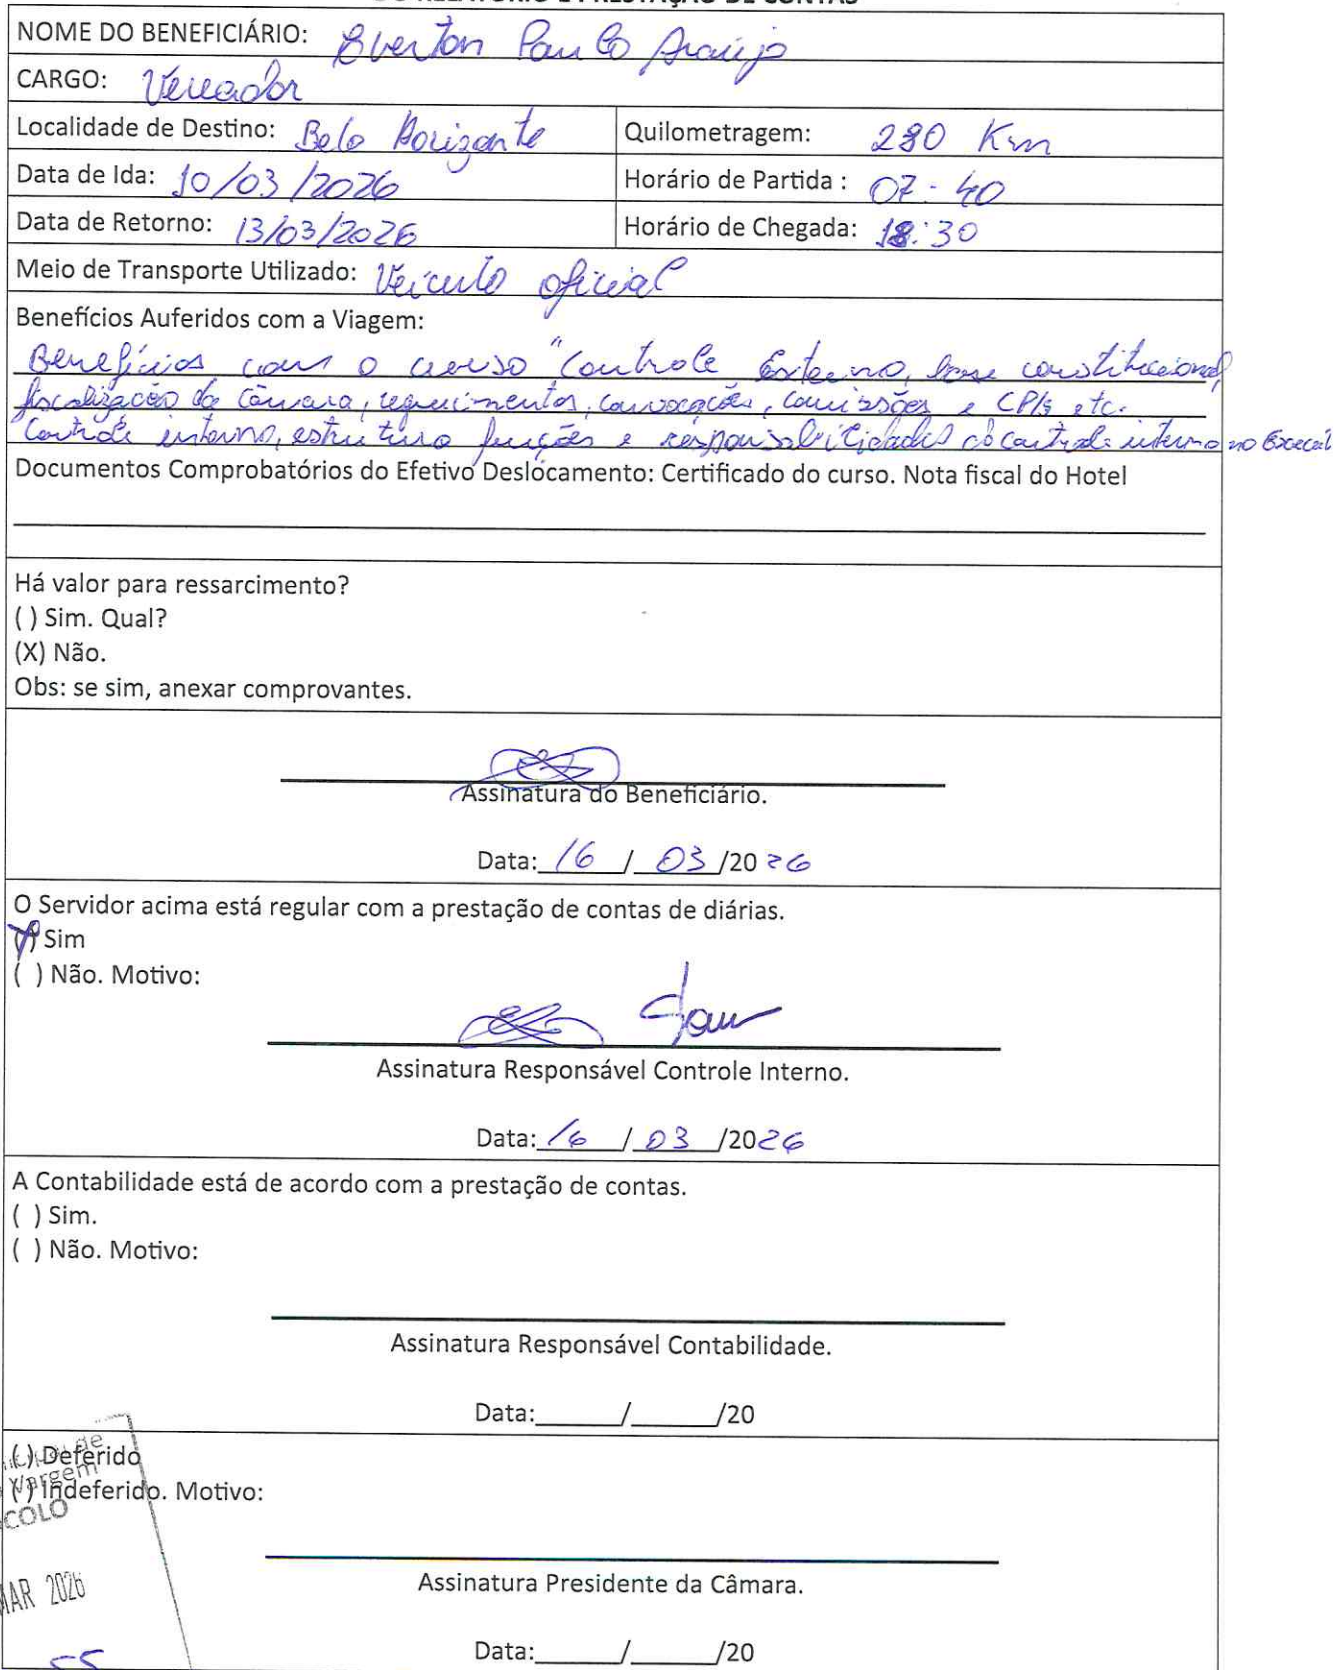 DO RELATÓRIO E PRESTAÇÃO DE CONTAS
NOME DO BENEFICIÁRIO: Everton Paulo Araújo
CARGO: Vereador
Localidade de Destino: Belo Horizonte Quilometragem: 280 Km
Data de Ida: 10/03/2026 Horário de Partida : 07-40
Data de Retorno: 13/03/2026 Horário de Chegada: 18:30
Meio de Transporte Utilizado: Veículo oficial
Benefícios Auferidos com a Viagem:
Benefícios com o curso "Controle Externo, base constitucional,
fiscalização da câmara, requerimentos, convocações, comissões e CPIs etc.
Controle interno, estrutura funções e responsabilidades do controle interno no
Documentos Comprobatórios do Efetivo Deslocamento: Certificado do curso. Nota fiscal do Hotel
Há valor para ressarcimento?
( ) Sim. Qual?
(X) Não.
Obs: se sim, anexar comprovantes.
Assinatura do Beneficiário.
Data: 16 / 03 /2026
O Servidor acima está regular com a prestação de contas de diárias.
(X) Sim
( ) Não. Motivo:
Assinatura Responsável Controle Interno.
Data: 16 / 03 /2026
A Contabilidade está de acordo com a prestação de contas.
( ) Sim.
( ) Não. Motivo:
Assinatura Responsável Contabilidade.
Data:______/______/20
( ) Deferido
( ) Indeferido. Motivo:
Vargem
COLO
MAR 2026
55
Assinatura Presidente da Câmara.
Data:______/______/20